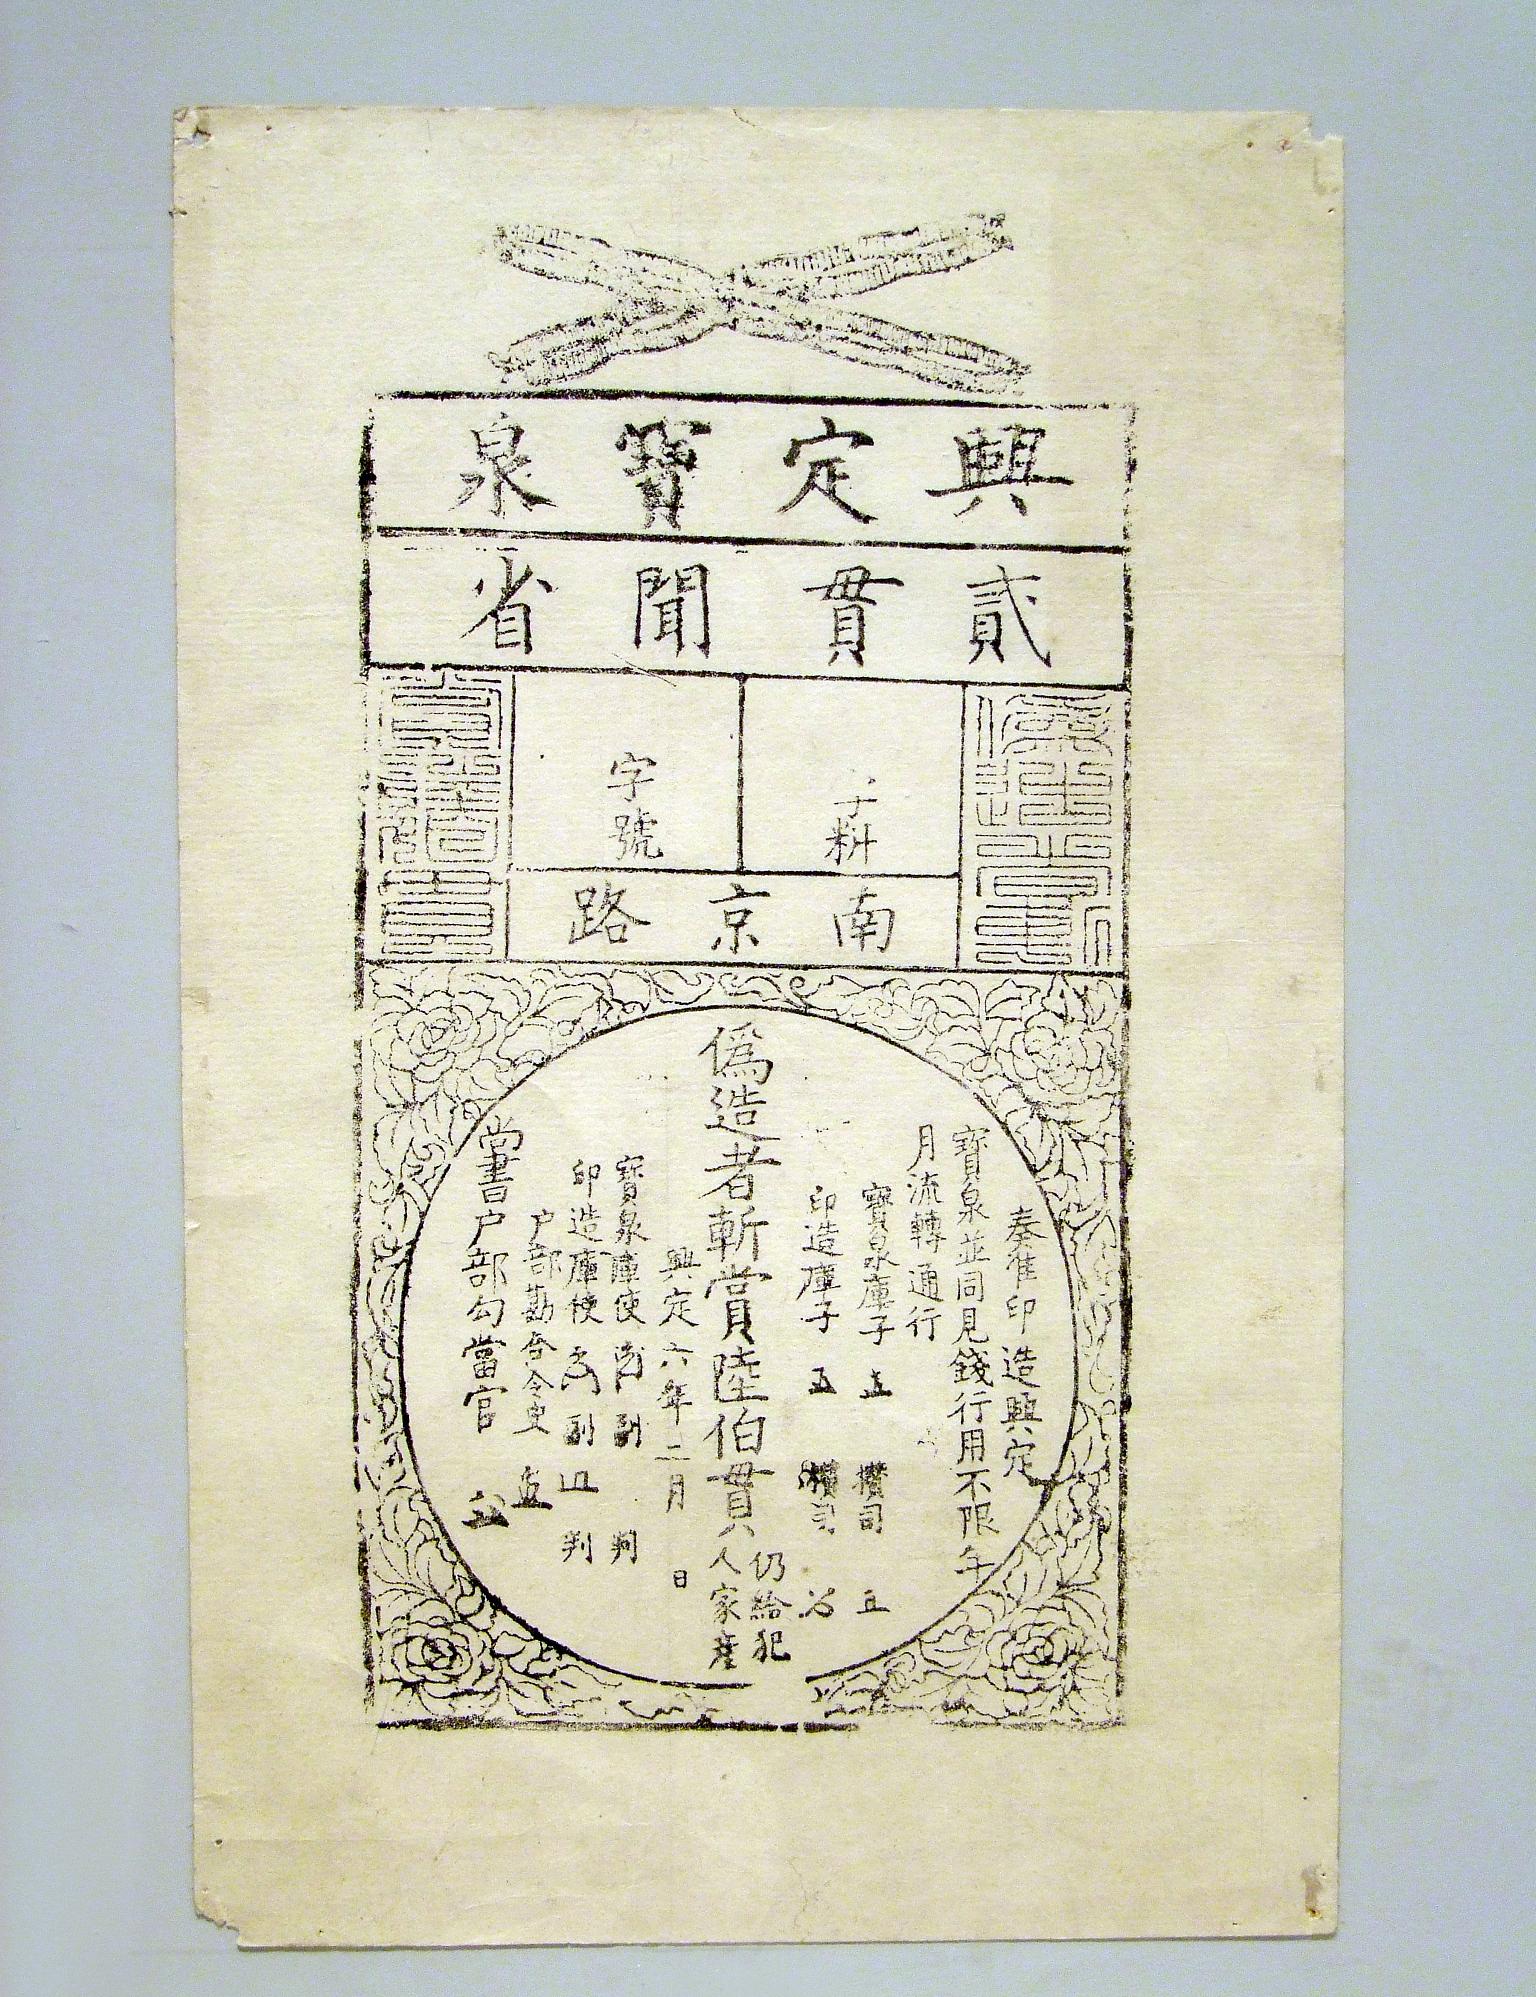 興定寶泉
貳貫聞省
字料
字號
南京路
偽造者斬
奏准印造興定
寶泉並同見錢行用不限年
月流轉通行
寶泉庫子 攢司
印造庫子 攢司
偽造者斬賞陸伯貫仍給犯人家產
興定六年二月 日
寶泉庫使 副 判
印造庫使 副 判
戶部勘合令史
尚書戶部勾當官